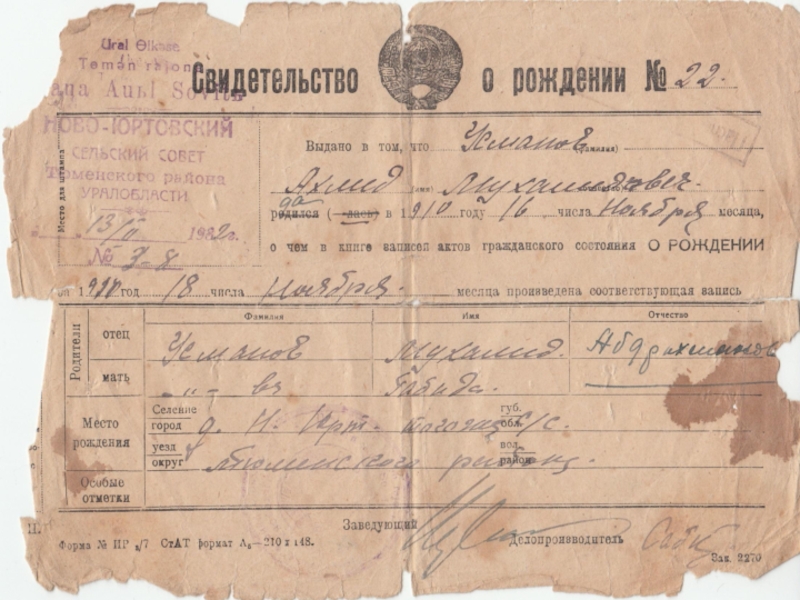 Ural Ɵlkəse
Temən rajon
aŋa Aurl Soviti
НОВО-ЮРТОВСКИЙ
СЕЛЬСКИЙ СОВЕТ
Тюменского района
УРАЛОБЛАСТИ
13/II 1932г.
№ 3-8
Место для штампа
Свидетельство о рождении № 22.
Выдано в том, что Усманов
(фамилия)
Ахмид (имя) Мухамидович.
родился (-лась) в 1910 году 16 числа Ноября месяца,
о чем в книге записей актов гражданского состояния О РОЖДЕНИИ
за 1910 год 18 числа Ноября месяца произведена соответствующая запись
Фамилия Имя Отчество
Родители
отец Усманов Мухамид. Абдрахманов
мать -"- ва Габида.
Место рождения
Селение город д. Н. Юрт. губ. обл. с/с.
уезд округ Тюменского вол. район
Особые отметки
Заведующий
Делопроизводитель
Форма № ПР з/7 СтАТ формат А₅—210 х 148.
Зак. 2270